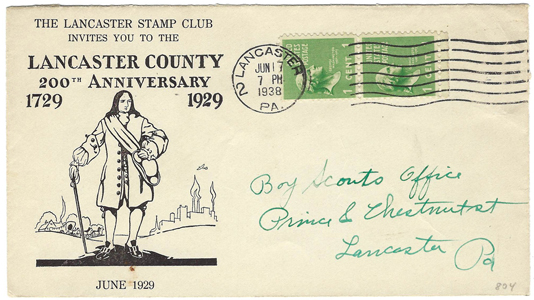 THE LANCASTER STAMP CLUB
INVITES YOU TO THE
LANCASTER COUNTY
200TH ANNIVERSARY
1729 1929
JUNE 1929
LANCASTER
JUN 17
7 PM
1938
PA.
2
1 CENT 1
1 CENT
Boy Scouts Office
Prince & Chestnut st
Lancaster Pa
804